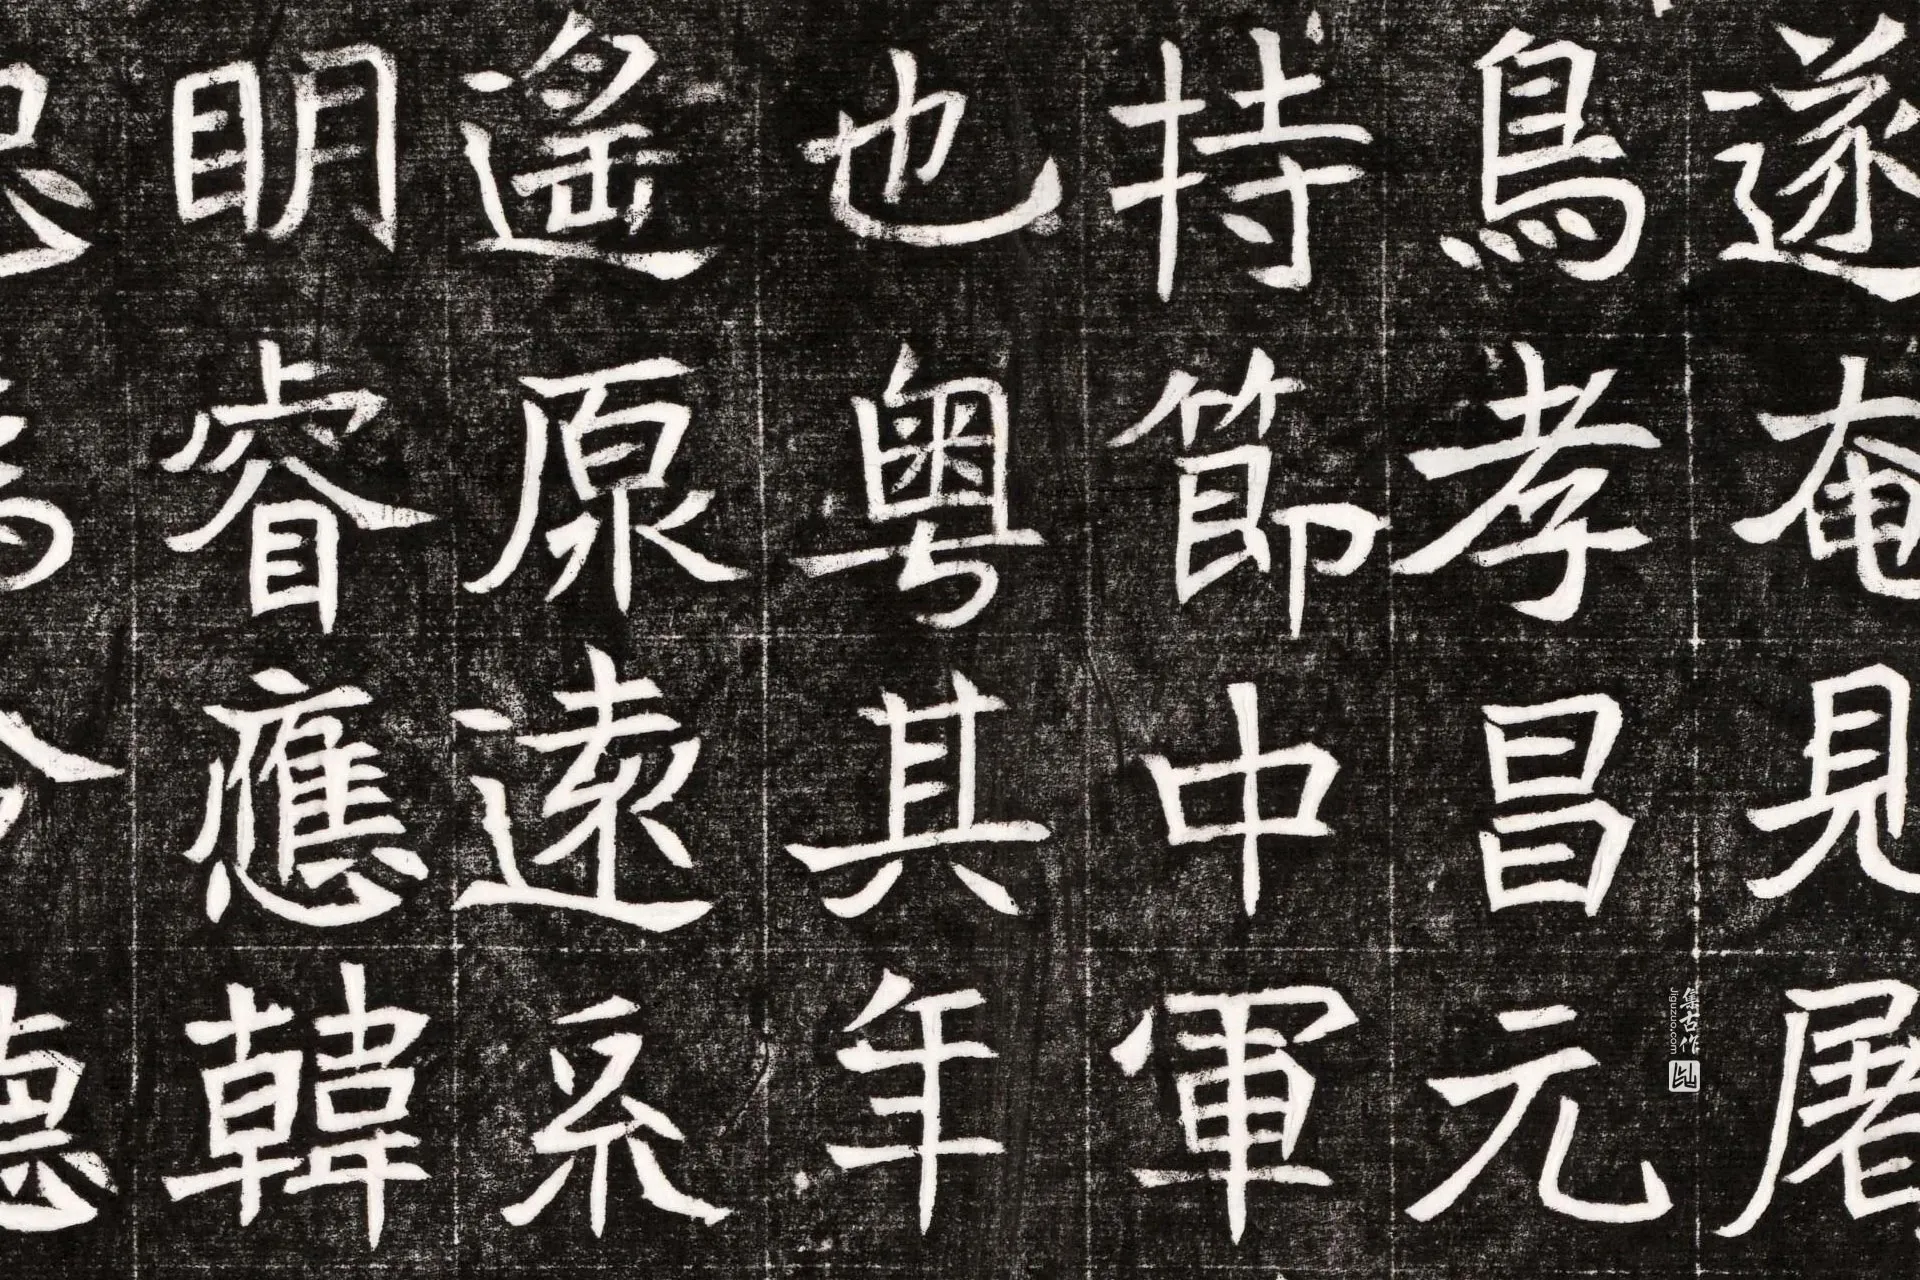 遂奄見屠
鳥孝昌元
持節中軍
也粤其年
遙原遠系
明睿應韓
德
集古作
Jiguzuo.com